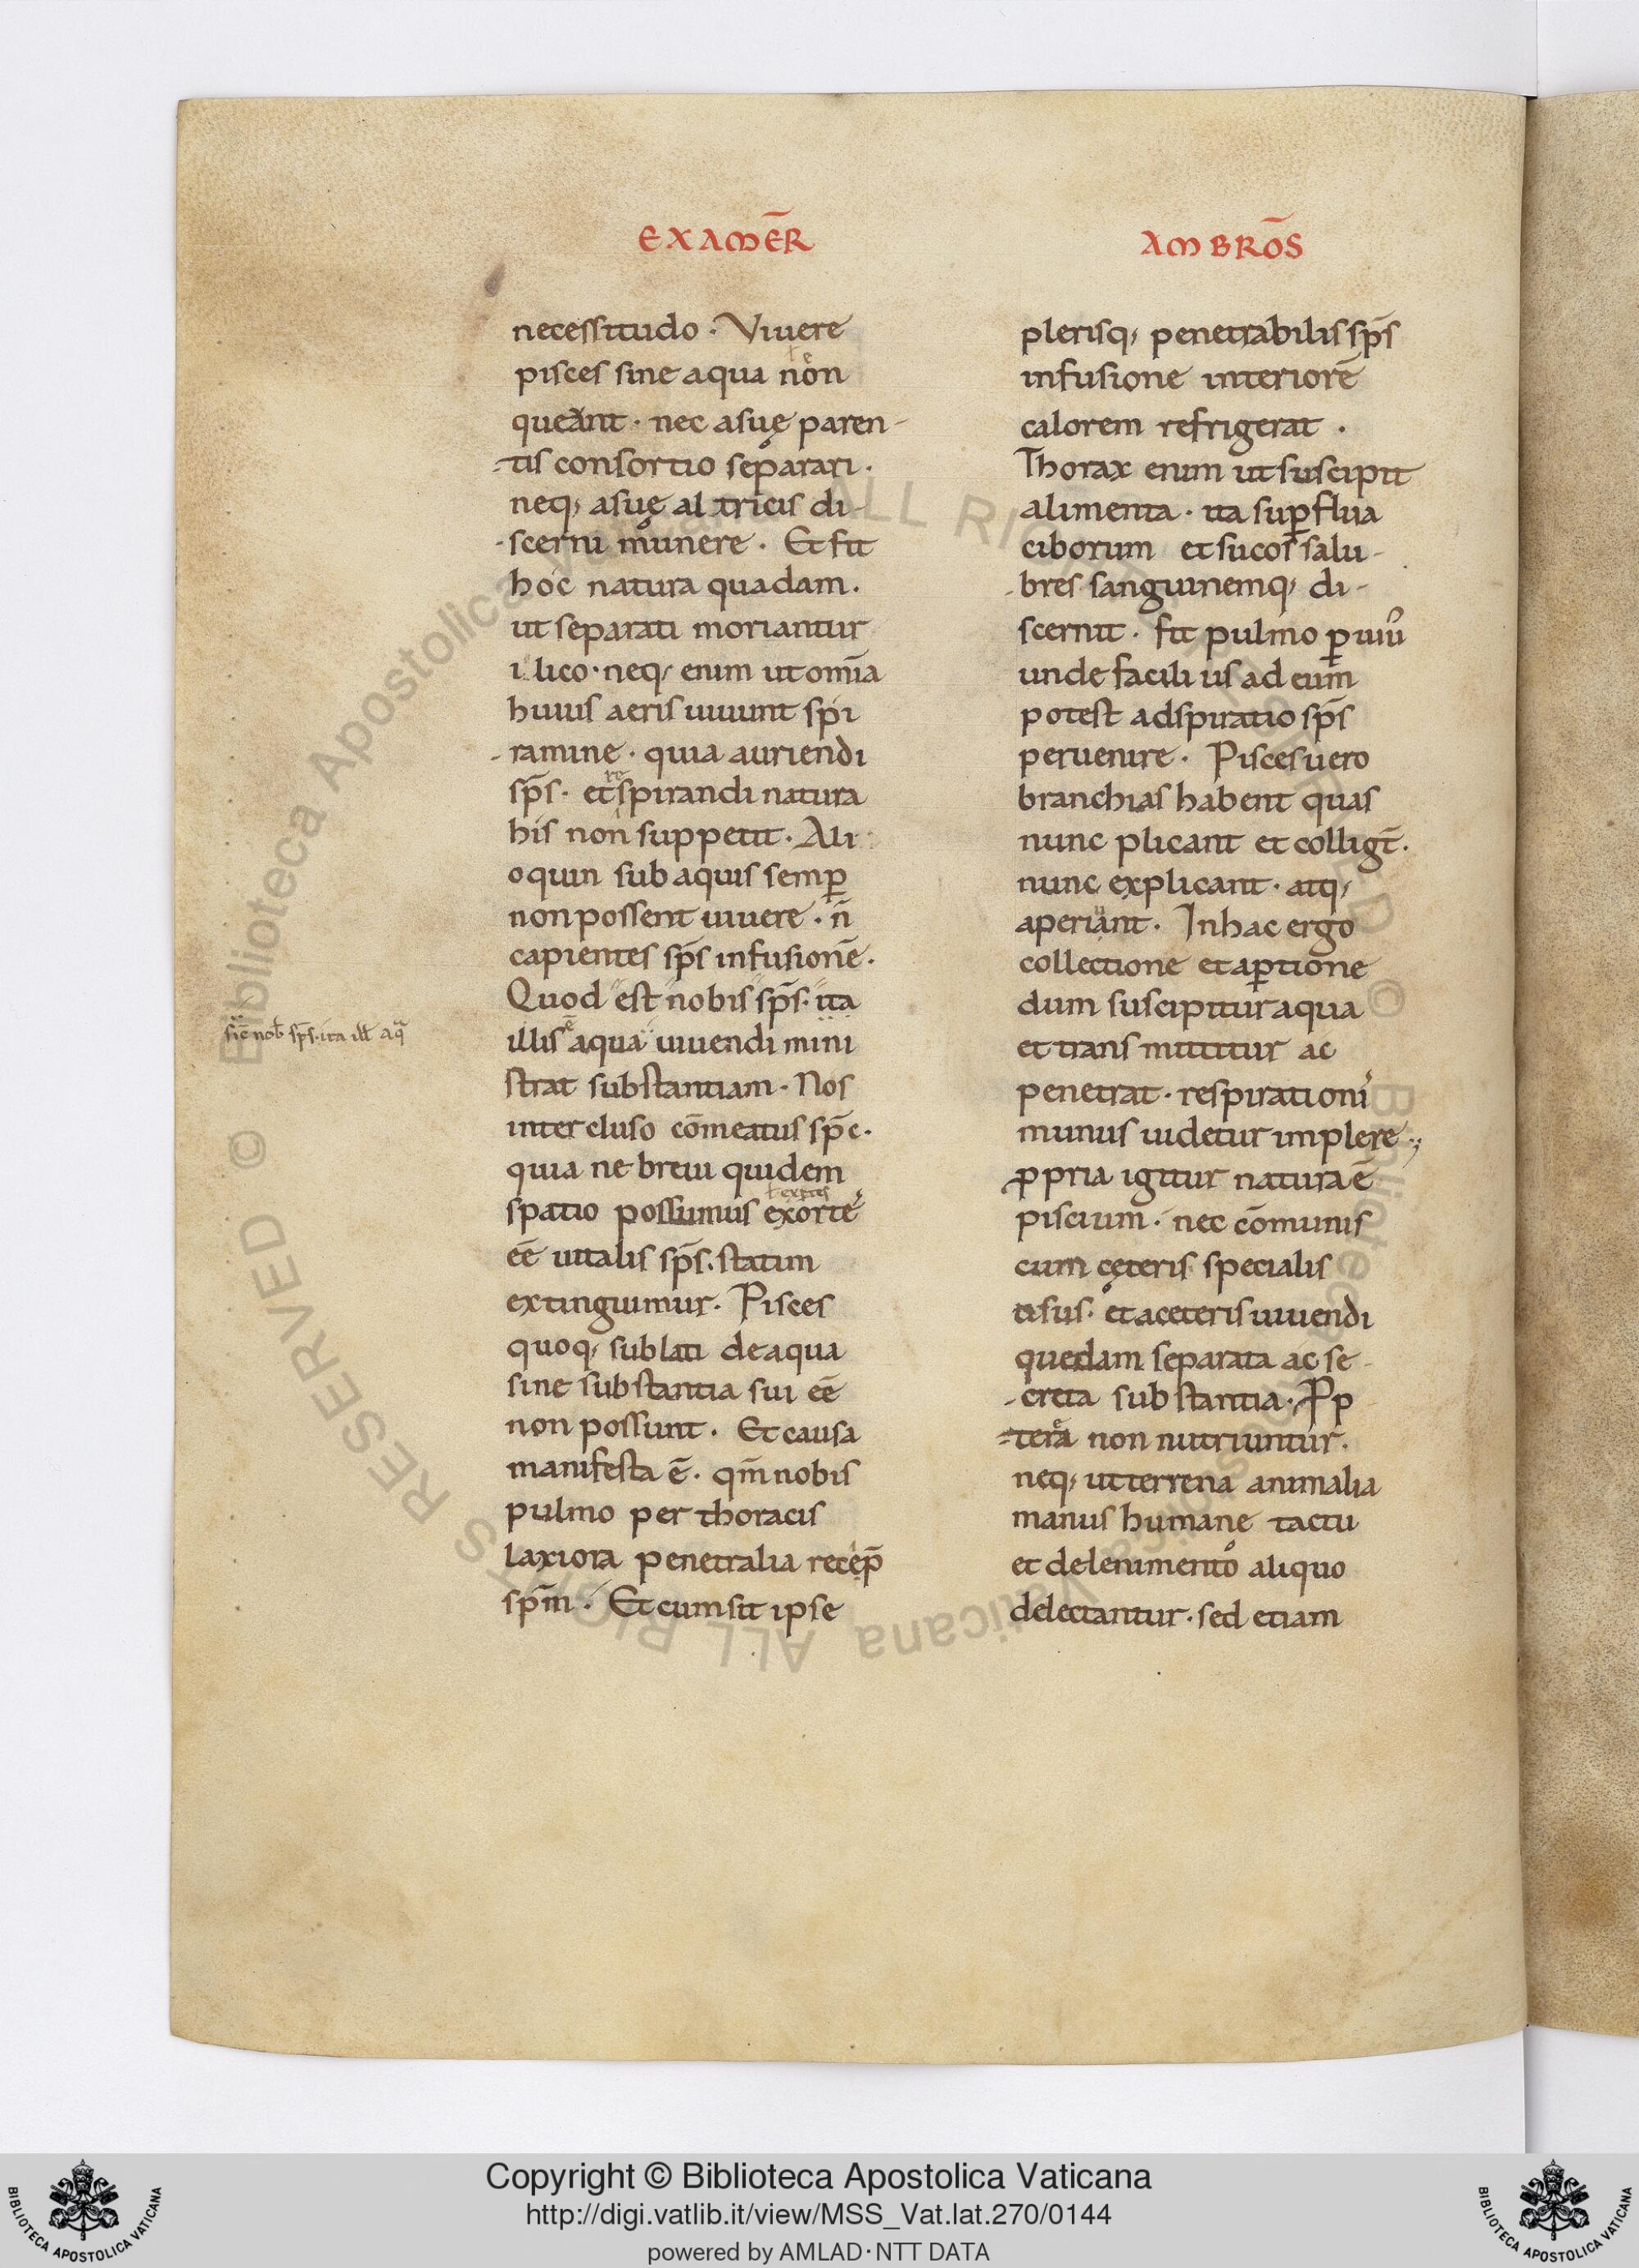 EXAMER̄
necessitudo · Viuere
pisces sine aqua non
queant · nec a suę paren-
-tis consortio separari ·
neq; a suę altricis di-
-scerni munere · Et fit
hoc natura quadam ·
ut separati moriantur
ilico · neq; enim ut om̄ia
huius aeris uiuunt spi
-ramine · quia auriendi
sp̄s · et respirandi natura
his non suppetit · Ali
oquin sub aquis semꝑ
non possent uiuere · n̄
capientes sp̄s infusionē ·
Quod est nobis sp̄s · ita
illis ē aqua uiuendi mini
strat substantiam · Nos
intercluso cōmeatus sp̄c ·
quia ne breui quidem
spatio possumus exorte
eē uitalis sp̄s · statim
extinguimur · Pisces
quoq; sublati de aqua
sine substantia sui eē
non possunt · Et causa
manifesta ē · qm̄ nobis
pulmo per thoracis
laxiora penetralia recep̄
sp̄m · Et cum sit ipse
sic̄ nob̄ sp̄s · ita ill̄ aq
AMBRŌS
plerisq; penetrabilis sp̄s
infusione interiorē
calorem refrigerat ·
Thorax enim ut suscipit
alimenta · ita suꝑflua
ciborum et sucos salu-
-bres sanguinemq; di-
scernit · fit pulmo ꝑuiū
unde facilius ad eum
potest adspiratio sp̄s
peruenire · Pisces uero
branchias habent quas
nunc plicant et colligt̄ ·
nunc explicant · atq;
aperiant · In hac ergo
collectione et aꝑtione
dum suscipitur aqua
et transmittitur ac
penetrat · respirationi
munus uidetur implere ·
ꝓpria igitur natura ē
piscium · nec cōmunis
cum cęteris specialis
usus · et a ceteris uiuendi
quedam separata ac se-
-creta substantia · Ꝓp
-terea non nutriuntur ·
neq; ut terrena animalia
manus humane tactu
et delenimento aliquo
delectantur · sed etiam
Copyright © Biblioteca Apostolica Vaticana
http://digi.vatlib.it/view/MSS_Vat.lat.270/0144
powered by AMLAD·NTT DATA
BIBLIOTECA APOSTOLICA VATICANA
BIBLIOTECA APOSTOLICA VATICANA